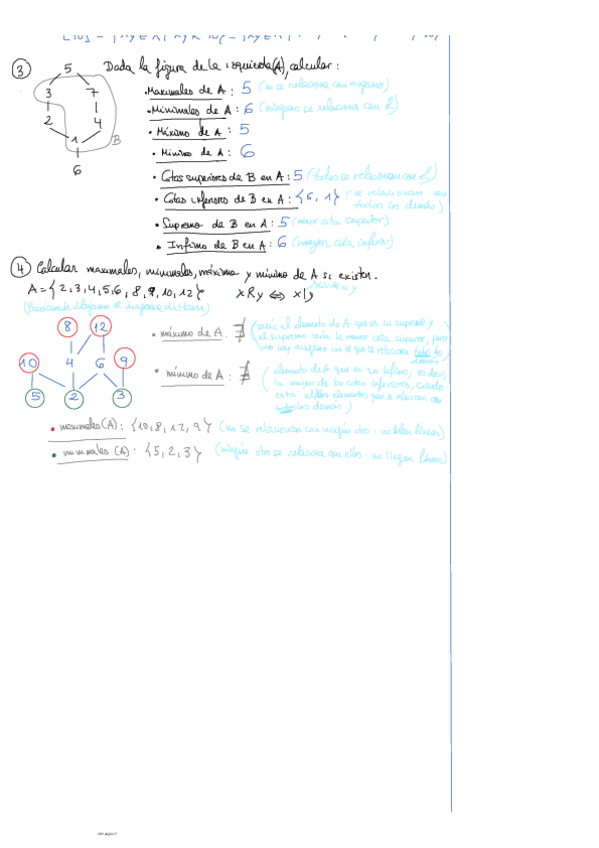 ③ Dada la figura de la izquierda (A), calcular:
5
3 7
2 4
1 B
6
• Maximales de A: 5 (no se relaciona con ninguno)
• Minimales de A: 6 (ninguno se relaciona con él)
• Máximo de A: 5
• Mínimo de A: 6
• Cotas superiores de B en A: 5 (todos se relacionan con el)
• Cotas inferiores de B en A: {6, 1} (se relacionan con todos los demás)
• Supremo de B en A: 5 (menor cota superior)
• Infimo de B en A: 6 (mayor cota inferior)
④ Calcular maximales, minimales, máximo y mínimo de A si existen.
A = {2,3,4,5,6,8,9,10,12} xRy ⇔ x|y
(Previamente dibujamos el diagrama de Hasse)
8 12
10 4 6 9
5 2 3
• máximo de A: ∄ (sería el elemento de A que es su supremo y
el supremo sería la menor cota superior, pero
no hay ninguno con el que se relacionen todos los
demás)
• mínimo de A: ∄ (elemento de A que es su ínfimo, es decir,
la mayor de las cotas inferiores, siendo
todos los demás)
• maximales (A): {10,8,12,9} (no se relacionan con ningún otro: no salen líneas)
• minimales (A): {5,2,3} (ningún otro se relaciona con ellos: no llegan líneas)